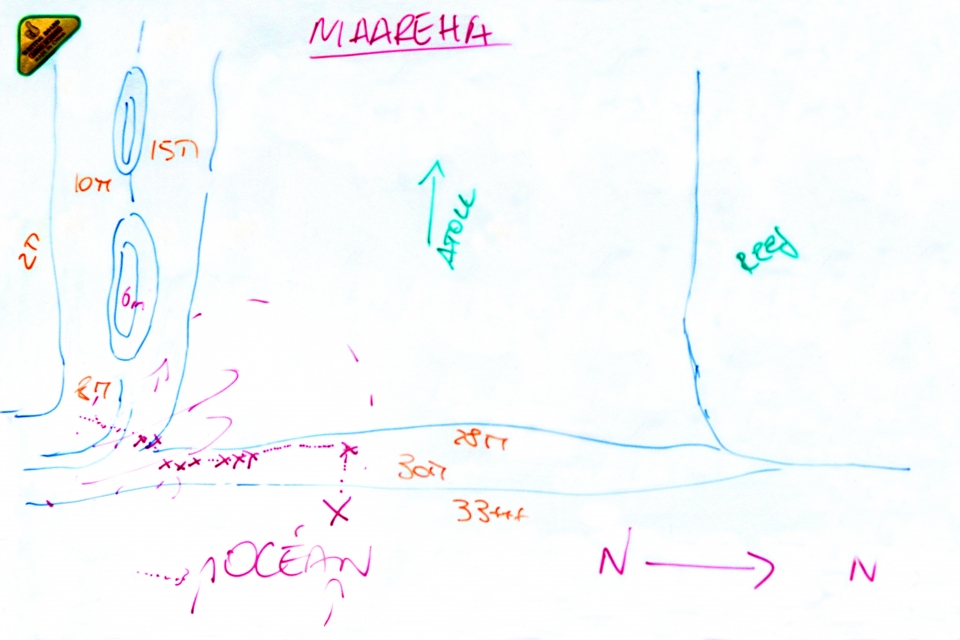 MAAREHA
15m
10m
2m
ATOLL
REEF
6m
8m
28m
30m
33+++
OCÉAN
N
N